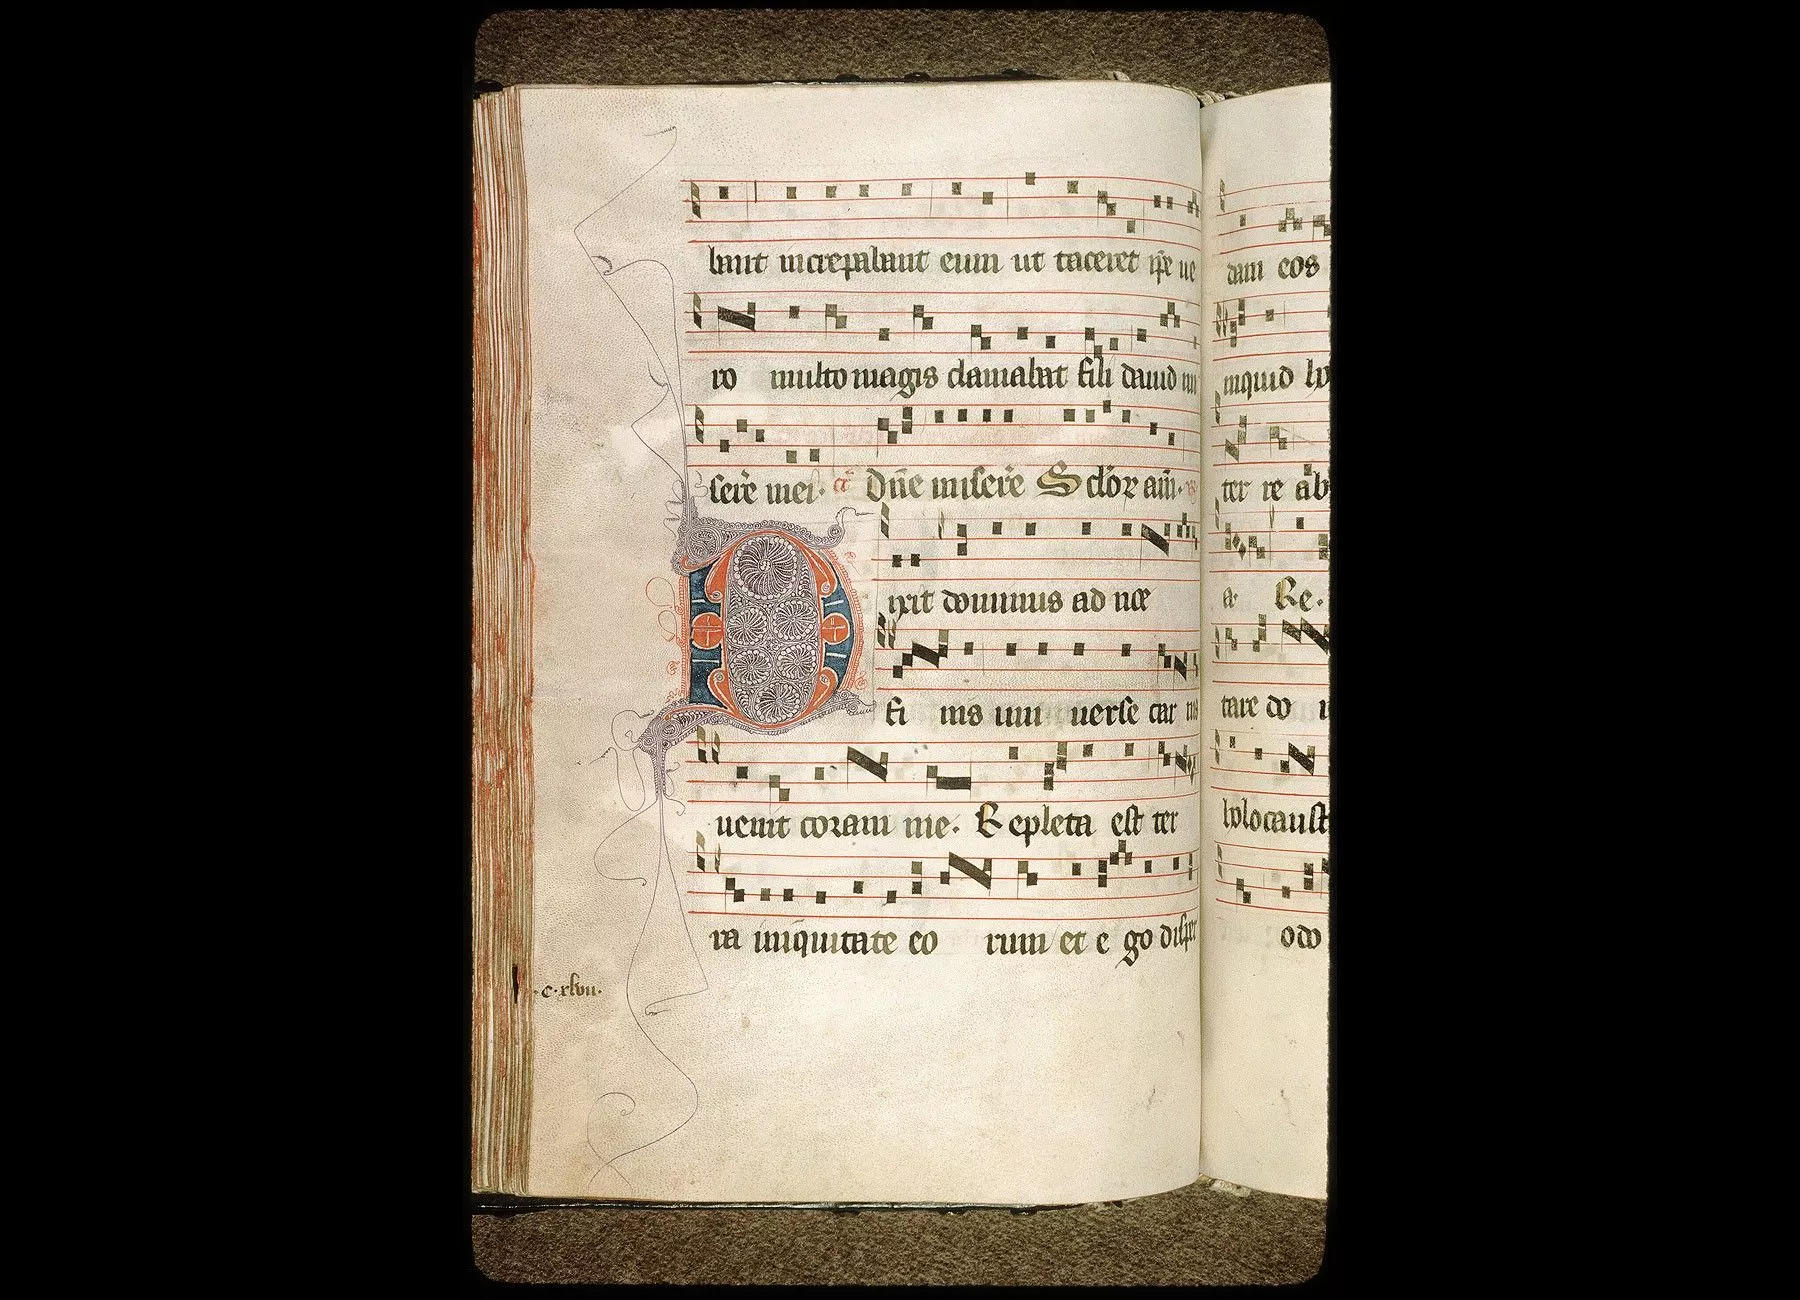 bant increpabant eum ut taceret ip̄e ue
ro multo magis clamabat fili dauid mi
sere mei· cr̄ Dn̄e misere S clor am̄·
D ixit dominus ad noe
fi nis uni uerse car nis
uenit coram me· R epleta est ter
ra iniquitate eo rum et e go disper
·c·xlvii·
dam eos
inquid
ter re ab
a· Re·
tare do
holocaust
odo